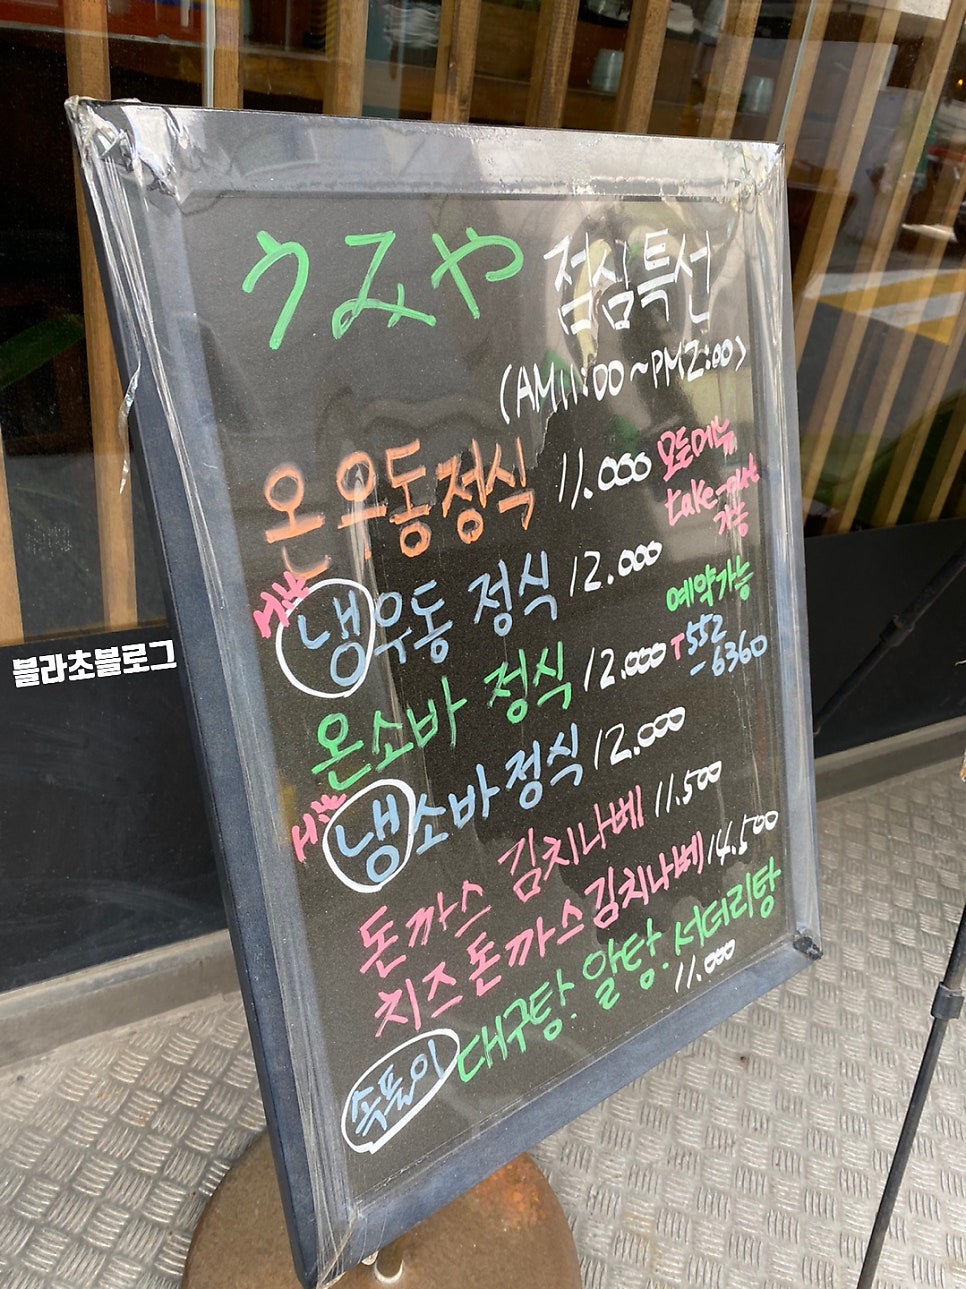 うみや 점심특선
(AM11:00~PM2:00)
온우동정식 11.000
모든메뉴
take-out
가능
냉우동 정식 12.000
예약가능
T 552
-6360
온소바 정식 12.000
냉소바정식 12.000
돈까스 김치나베 11.500
치즈돈까스김치나베 14.500
속풀이 대구탕. 알탕. 서더리탕
11.000
블라초블로그